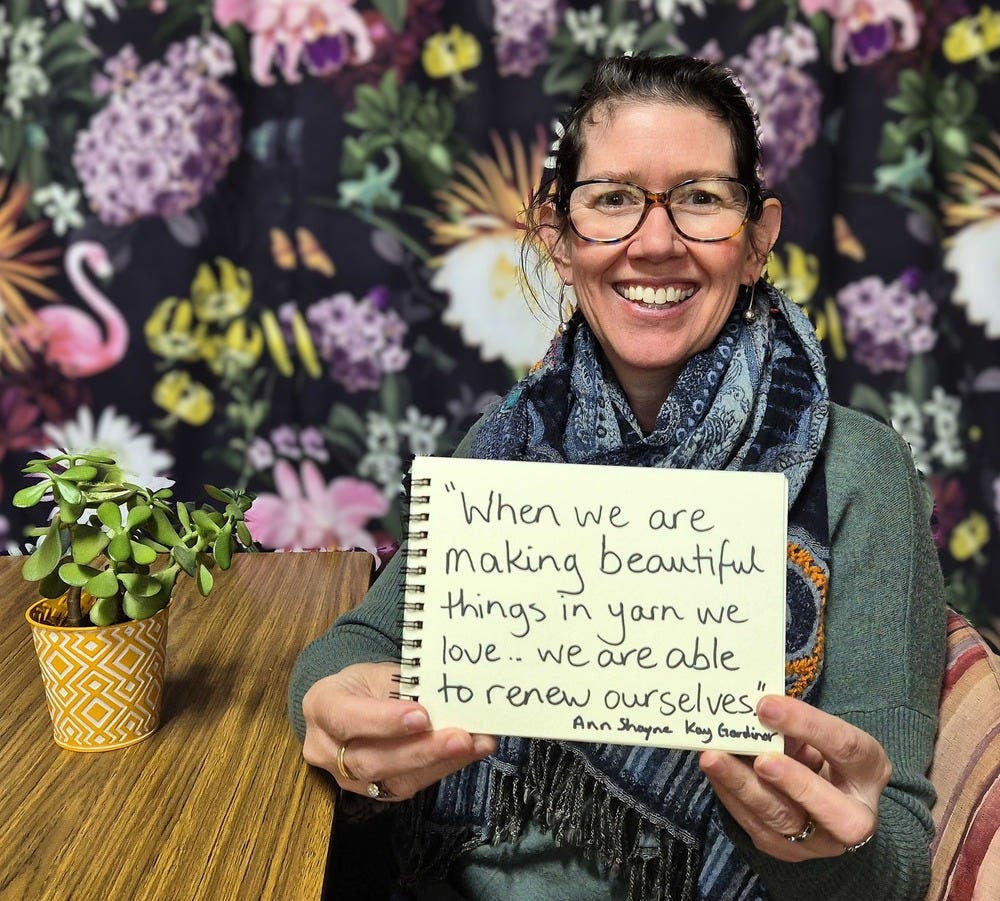 "When we are
making beautiful
things in yarn we
love.. we are able
to renew ourselves."
Ann Shayne Kay Gardiner